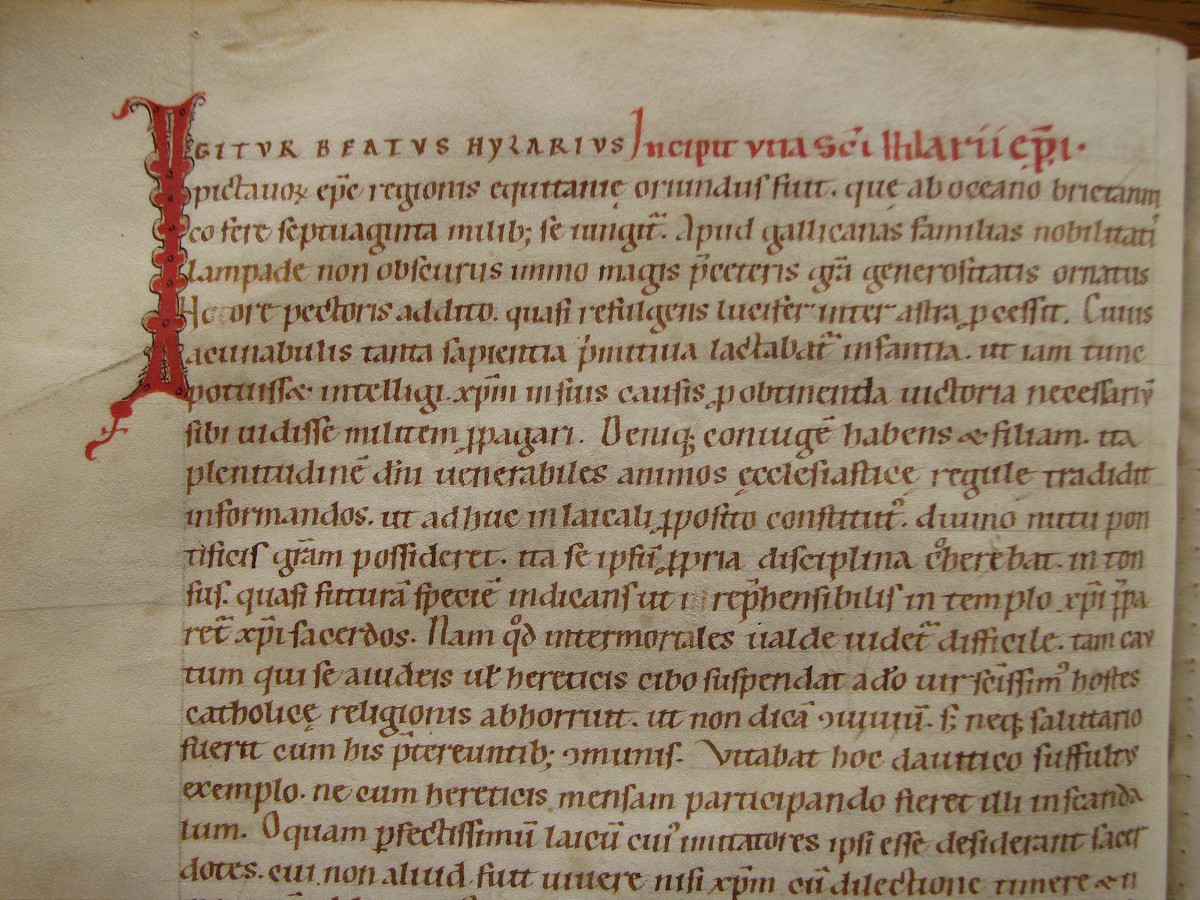 IGITVR BEATVS HYLARIVS Incipit vita sc̄i Hilarii ep̄i.
pictauoꝝ ep̄c regionis equitanię oriundus fuit. que ab oceano brietannı
co fere septuaginta milib; se iungit᷑. Apud gallicanas familias nobilitatis
lampade non obscurus immo magis p̄ceteris gr̄a generositatis ornatus
pectoris addito. quasi refulgens lucifer inter astra ꝓcessit. Cuius
acunabulis tanta sapientia p̄mitiua lactabat᷑ infantia. ut iam tunc
potuisset intelligi xp̄m in suis causis ꝓ obtinenda uictoria necessariū
sibi uidisse militem ꝓpagari. Deniq; coniugē habens & filiam. ita
plenitudinē diu uenerabiles animos ęcclesiasticę regule tradidit
informandos. ut adhuc in laicali ꝓposito constitut᷒. diuino nutu pon
tificis gr̄am possideret. ita se ipsū ꝓpria disciplina coherebat. in ton
sus. quasi futurā speciē indicans ut rep̄hensibilis in templo xp̄i p̄pa
ret᷑ xp̄i sacerdos. Nam qͦd inter mortales ualde uidet᷑ difficile. tam cau
tum qui se a iudeis ul̄ hereticis cibo suspendat adͦo uir sc̄issim᷒ hostes
catholicę religionis abhorruit. ut non dicā ꝯuiuiū. s; neq; salutatio
fuerit cum his p̄tereuntib; ꝯmunis. Vitabat hoc dauitico suffultus
exemplo. ne cum hereticis mensam participando fieret illi in scanda
lum. O quam ꝑfectissimū laicū cui᷒ imitatores ipsi esse desiderant sacer
dotes. cui non aliud fuit uiuere nisi xp̄m cū dilectione timere &